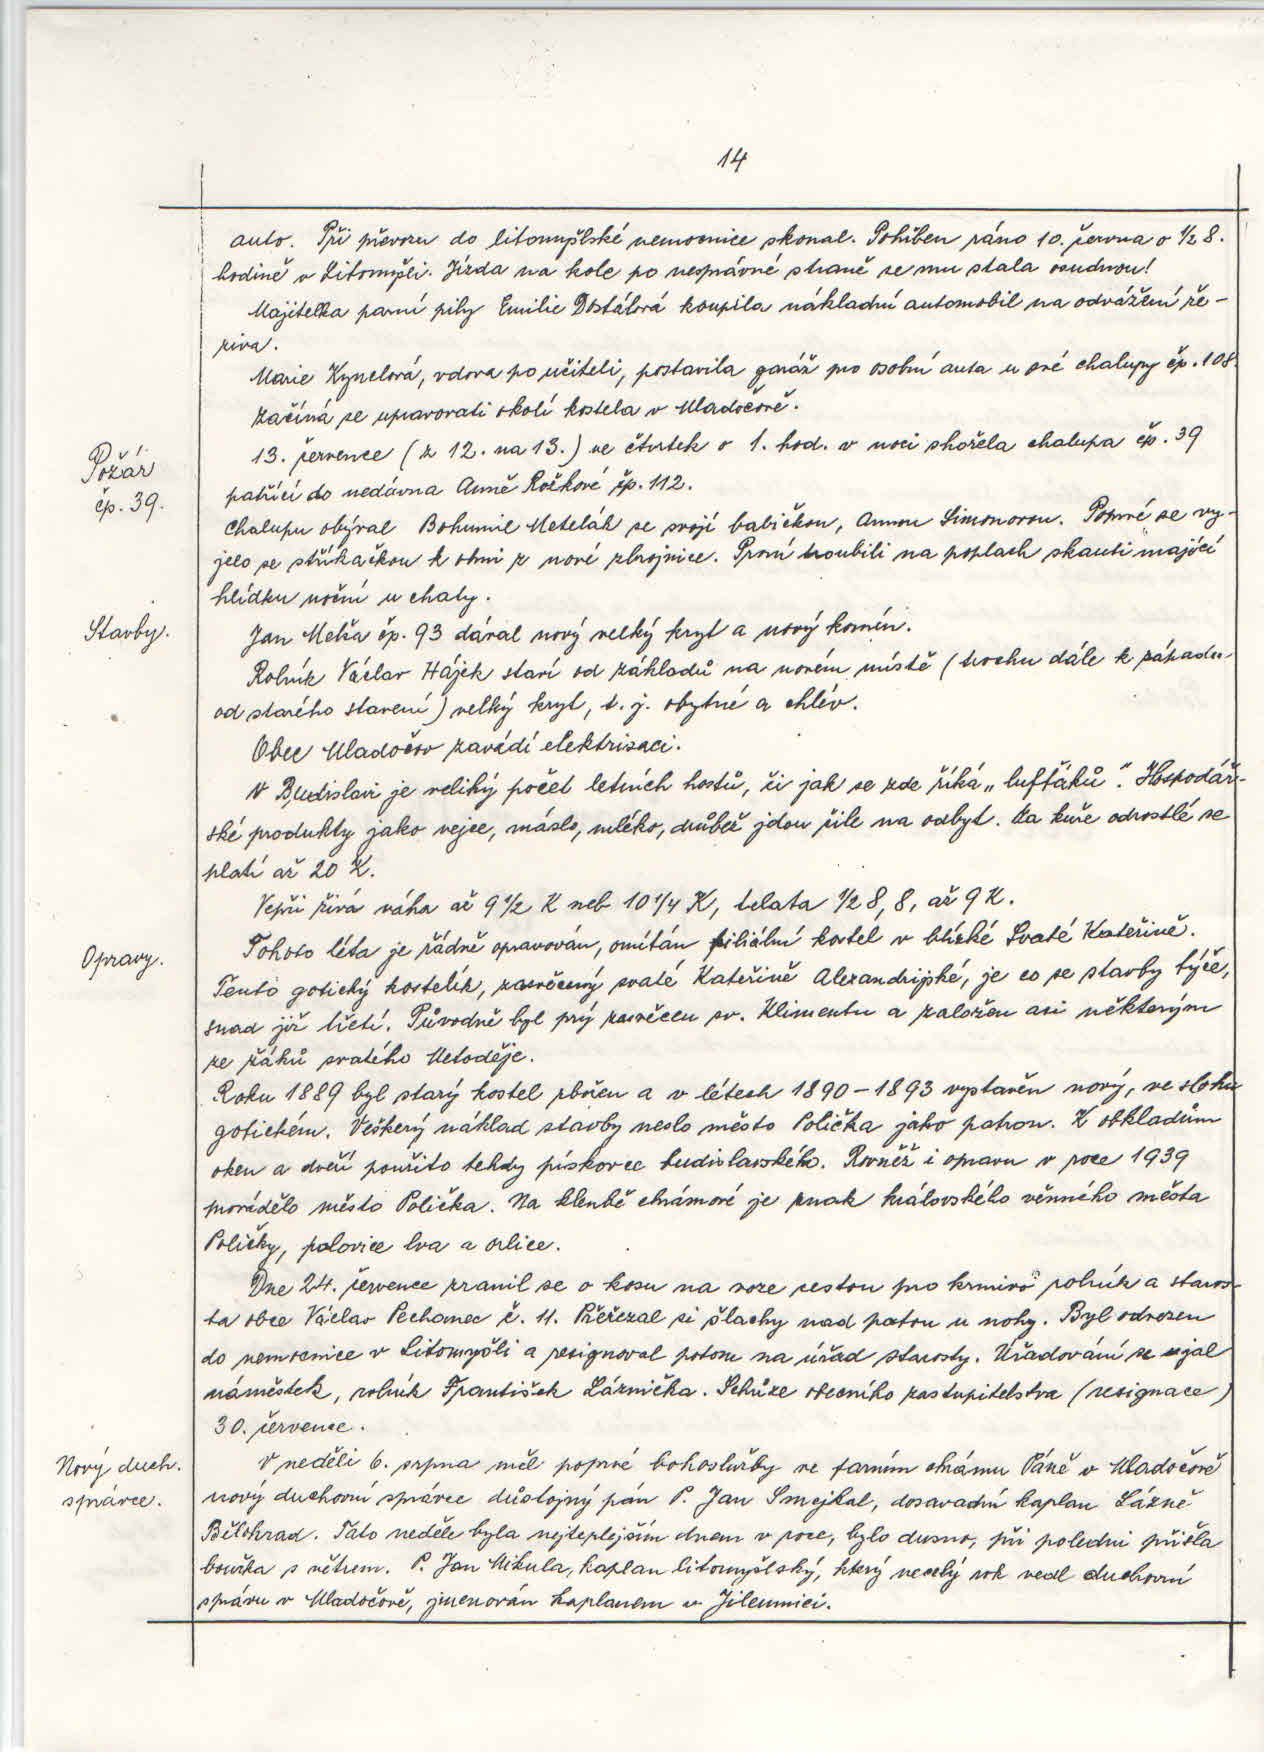 14
auto. Při převozu do litomyšlské nemocnice skonal. Pohřben ráno 10. června o ½ 8.
hodině v Litomyšli. Jízda na kole po nesprávné straně se mu stala osudnou!
Majitelka parní pily Emilie Dostálová koupila nákladní automobil na odvážení ře-
ziva.
Marie Kynclová, vdova po učiteli, postavila garáž pro osobní auta u své chalupy čp. 108.
Začíná se upravovati okolí kostela v Mladočově.
Požár
čp. 39.
13. července (z 12. na 13.) ve čtvrtek o 1. hod. v noci shořela chalupa čp. 39
patřící do nedávna Anně Roškové čp. 112.
Chalupu obýval Bohumil Metelák se svojí babičkou, Annou Simonovou. Poprvé se vy-
jelo se stříkačkou k ohni z nové zbrojnice. První troubili na poplach skauti mající
hlídku noční u chaty.
Stavby.
Jan Melša čp. 93 dával nový velký kryt a nový komín.
Rolník Václav Hájek staví od základů na novém místě (trochu dále k západu
od starého stavení) velký kryt, t. j. obytné a chlév.
Obec Mladočov zavádí elektrisaci.
V Budislavi je veliký počet letních hostů, či jak se zde říká „lufťáků". Hospodář-
ské produkty jako vejce, máslo, mléko, drůbež jdou čile na odbyt. Za kuře odrostlé se
platí až 20 K.
Vepři živá váha až 9 ½ K neb 10 ¼ K, telata ½ 8, 8, až 9 K.
Opravy.
Tohoto léta je řádně opravován, omítán filiální kostel v blízké Svaté Kateřině.
Tento gotický kostelík, zasvěcený svaté Kateřině Alexandrijské, je co se stavby týče,
snad již třetí. Původně byl prý zasvěcen sv. Klimentu a založen asi některým
ze žáků svatého Metoděje.
Roku 1889 byl starý kostel zbořen a v létech 1890 – 1893 vystavěn nový, ve slohu
gotickém. Veškerý náklad stavby neslo město Polička jako patron. K obkladům
oken a dveří použito tehdy pískovce budislavského. Rovněž i opravu v roce 1939
provádělo město Polička. Na klenbě chrámové je znak královského věnného města
Poličky, polovice lva a orlice.
Dne 24. července zranil se o kosu na voze cestou pro krmivo rolník a staros-
ta obce Václav Pechanec č. 11. Přeřezal si šlachy nad patou u nohy. Byl odvezen
do nemocnice v Litomyšli a resignoval potom na úřad starosty. Úřadování se ujal
náměstek, rolník František Láznička. Schůze obecního zastupitelstva (resignace)
30. července.
Nový duch.
správce.
V neděli 6. srpna měl poprvé bohoslužby ve farním chrámu Páně v Mladočově
nový duchovní správce důstojný pán P. Jan Smejkal, dosavadní kaplan Lázně
Bělohrad. Tato neděle byla nejteplejším dnem v roce, bylo dusno, při poledni přišla
bouřka s větrem. P. Jan Mikula, kaplan litomyšlský, který necelý rok vedl duchovní
správu v Mladočově, jmenován kaplanem v Jilemnici.